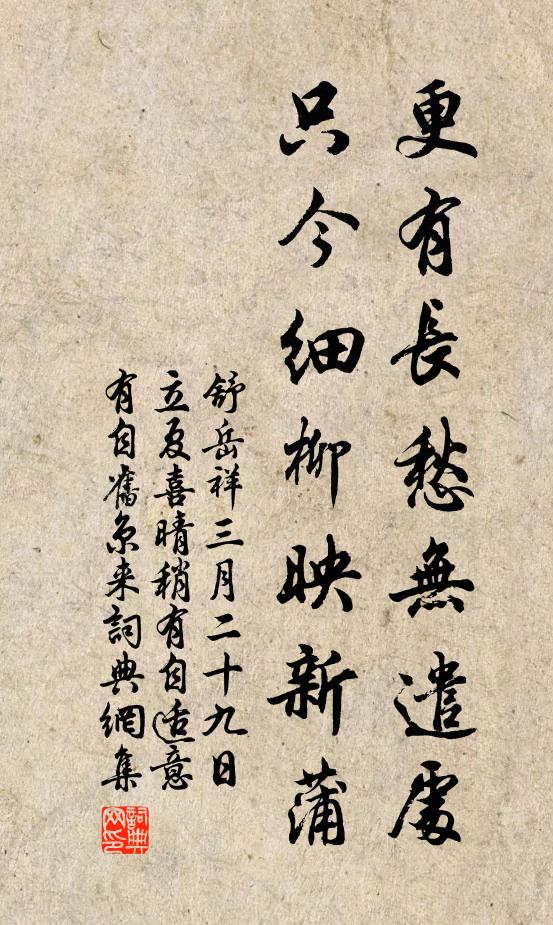 更有長愁無遣處
只今細柳映新蒲
舒岳祥三月二十九日
立夏喜晴稍有自适意
有自舊京来詞典網集
詞典网印